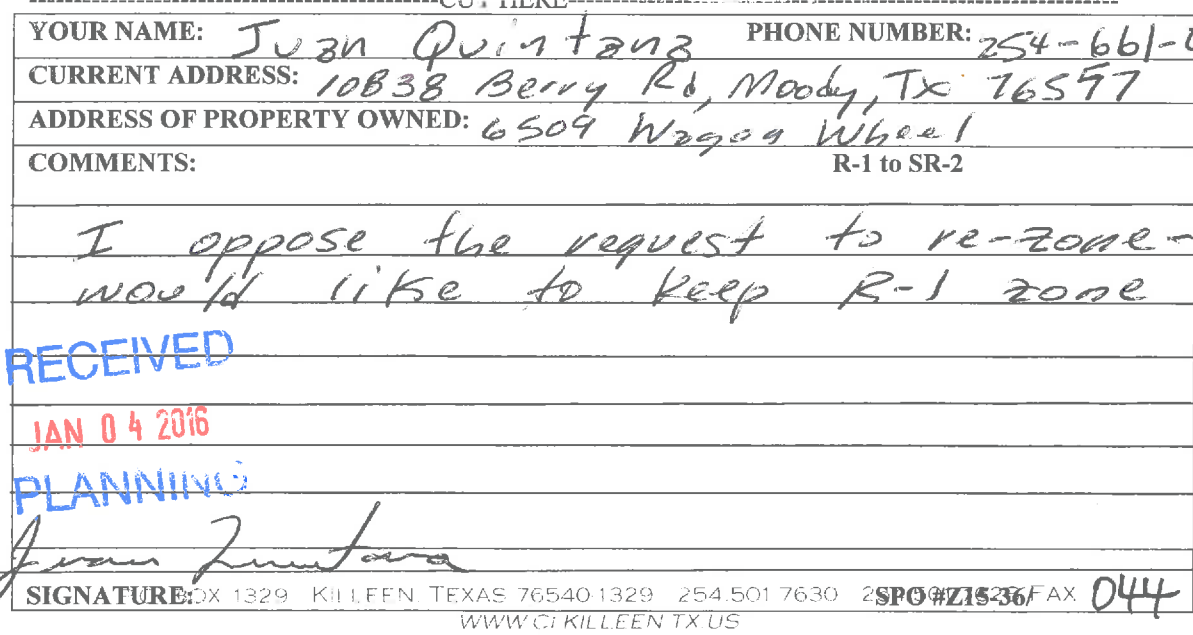 CUT HERE
YOUR NAME: Juan Quintana PHONE NUMBER: 254-661-
CURRENT ADDRESS: 10838 Berry Rd, Moody, Tx 76557
ADDRESS OF PROPERTY OWNED: 6509 Wagon Wheel
COMMENTS: R-1 to SR-2
I oppose the request to re-zone-
would like to keep R-1 zone
RECEIVED
JAN 04 2016
PLANNING
Juan Quintana
SIGNATURE: BOX 1329 KILLEEN, TEXAS 76540-1329 254.501.7630 SPO #Z15-36/ FAX 044
WWW.CI.KILLEEN.TX.US